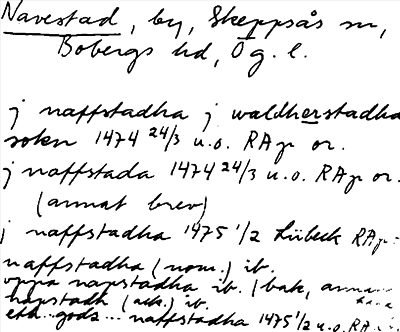 Navestad, by, Skeppsås sn,
Bobergs hd, Ög. l.
j naffstadha j waldherstadha
sokn 1474 24/3 u.o. RAp or.
j naffstada 1474 24/3 u.o. RAp or.
(annat brev)
j naffstadha 1475 1/2 Lübeck RAp
naffstadha (nom.) ib.
vppa napstadha ib. (bak,
hapstadh (ack.) ib.
eth godz... naffstadha 1475 1/2 u.o. RA